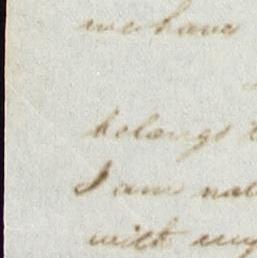 we have
belongs t
I am not
with my